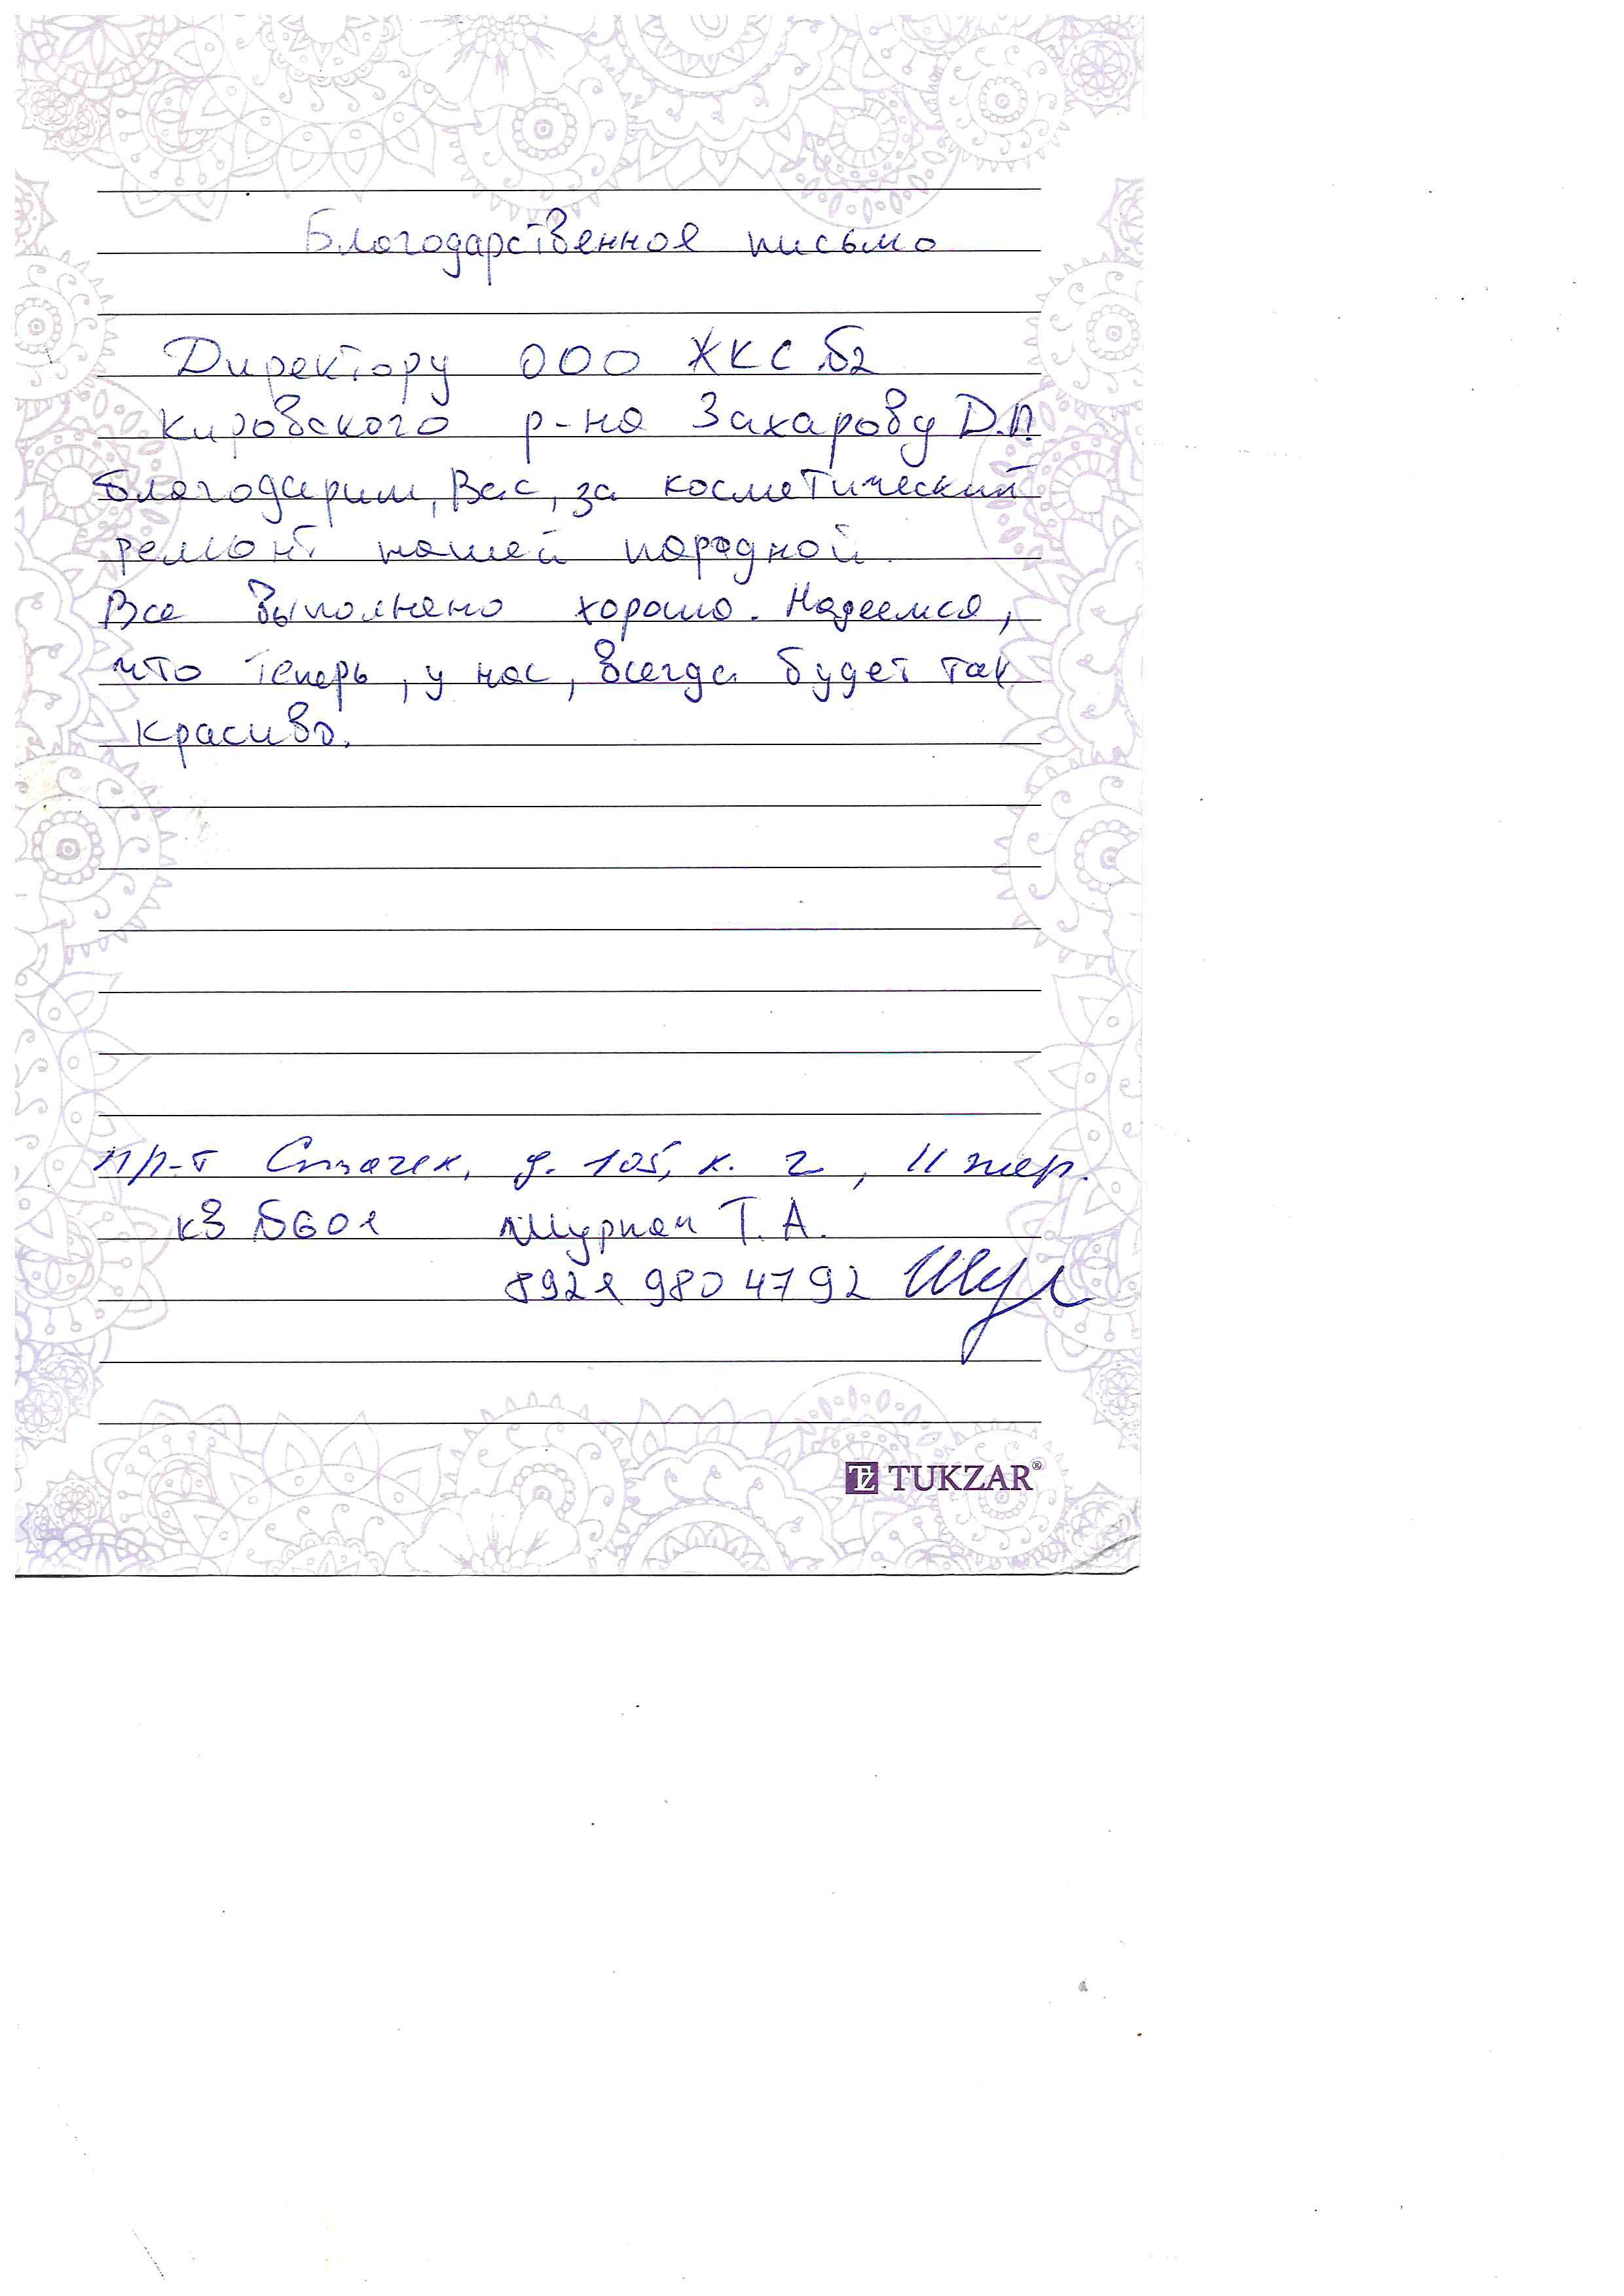 Благодарственное письмо
Директору ООО ЖКС №2
Кировского р-на Захарову Д.П.
Благодарим, Вас, за косметический
ремонт нашей парадной.
Все выполнено хорошо. Надеемся,
что теперь, у нас, всегда будет так
красиво.
пр-т Стачек, д. 105, к. 2, II пар.
кв №601 Т. А.
8921 980 4792
TZ TUKZAR®